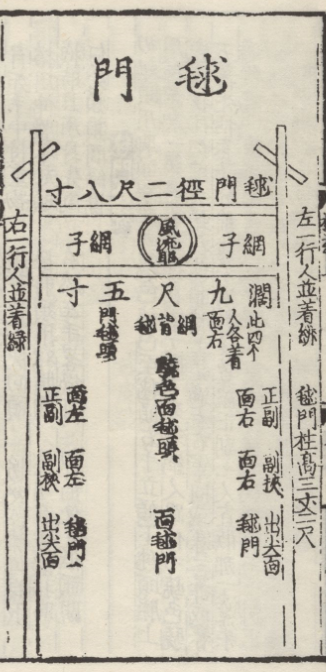 毬門
毬門徑二尺八寸
網子
風流眼
網子
濶九尺五寸
左一行人並着緋
毬門柱高三丈二尺
右一行人並着緑
此四个
人各着
面右
網背毬
門毬頭
面毬門
正副
面右
副挾
面右
出尖面
毬門
面左
正副
面左
副挾
毬門
出尖面